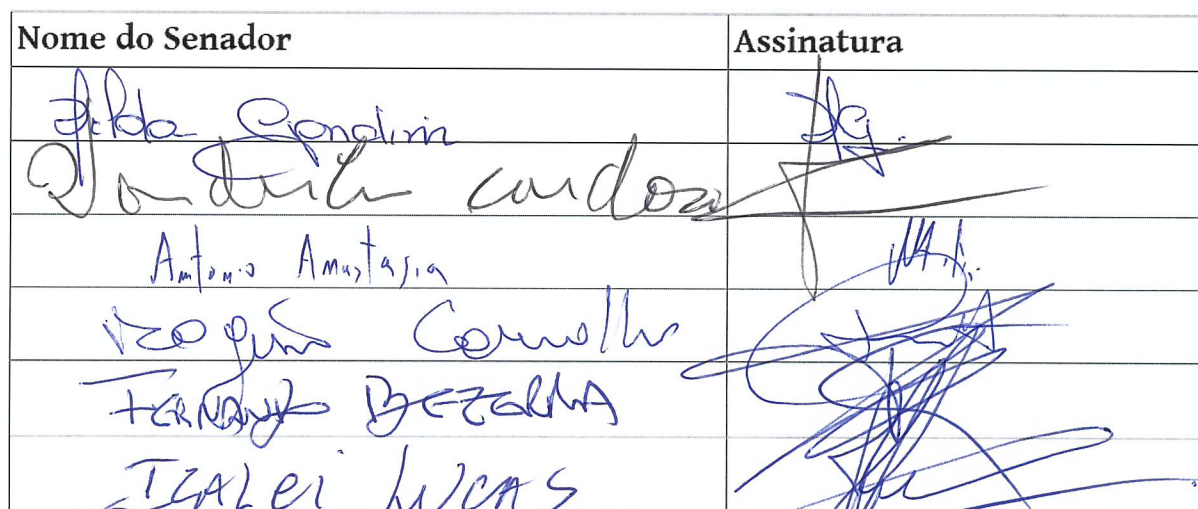 Nome do Senador Assinatura
Nilda Gondim NG.
Vanderlan Cardoso
Antonio Anastasia
Rogério Carvalho
FERNANDO BEZERRA
IZALCI LUCAS